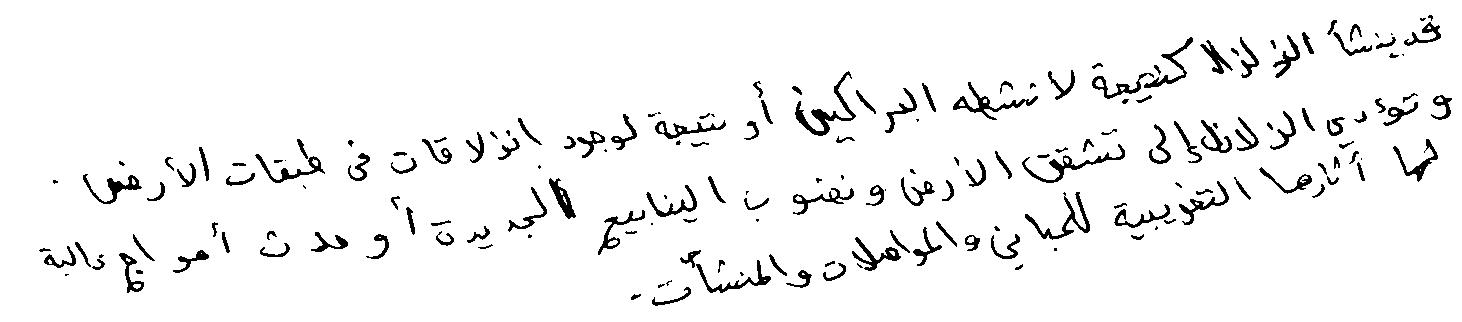 قد ينشأ الزلزال كنتيجة لانشطه البراكين أو نتيجة لوجود انزلاقات في طبقات الأرض .
وتؤدي الزلازل إلى تشقق الأرض ونضوب الينابيع الجديدة أو حدث أمواج عالية
لها أثارها التخريبية للمباني والمواصلات والمنشآت .